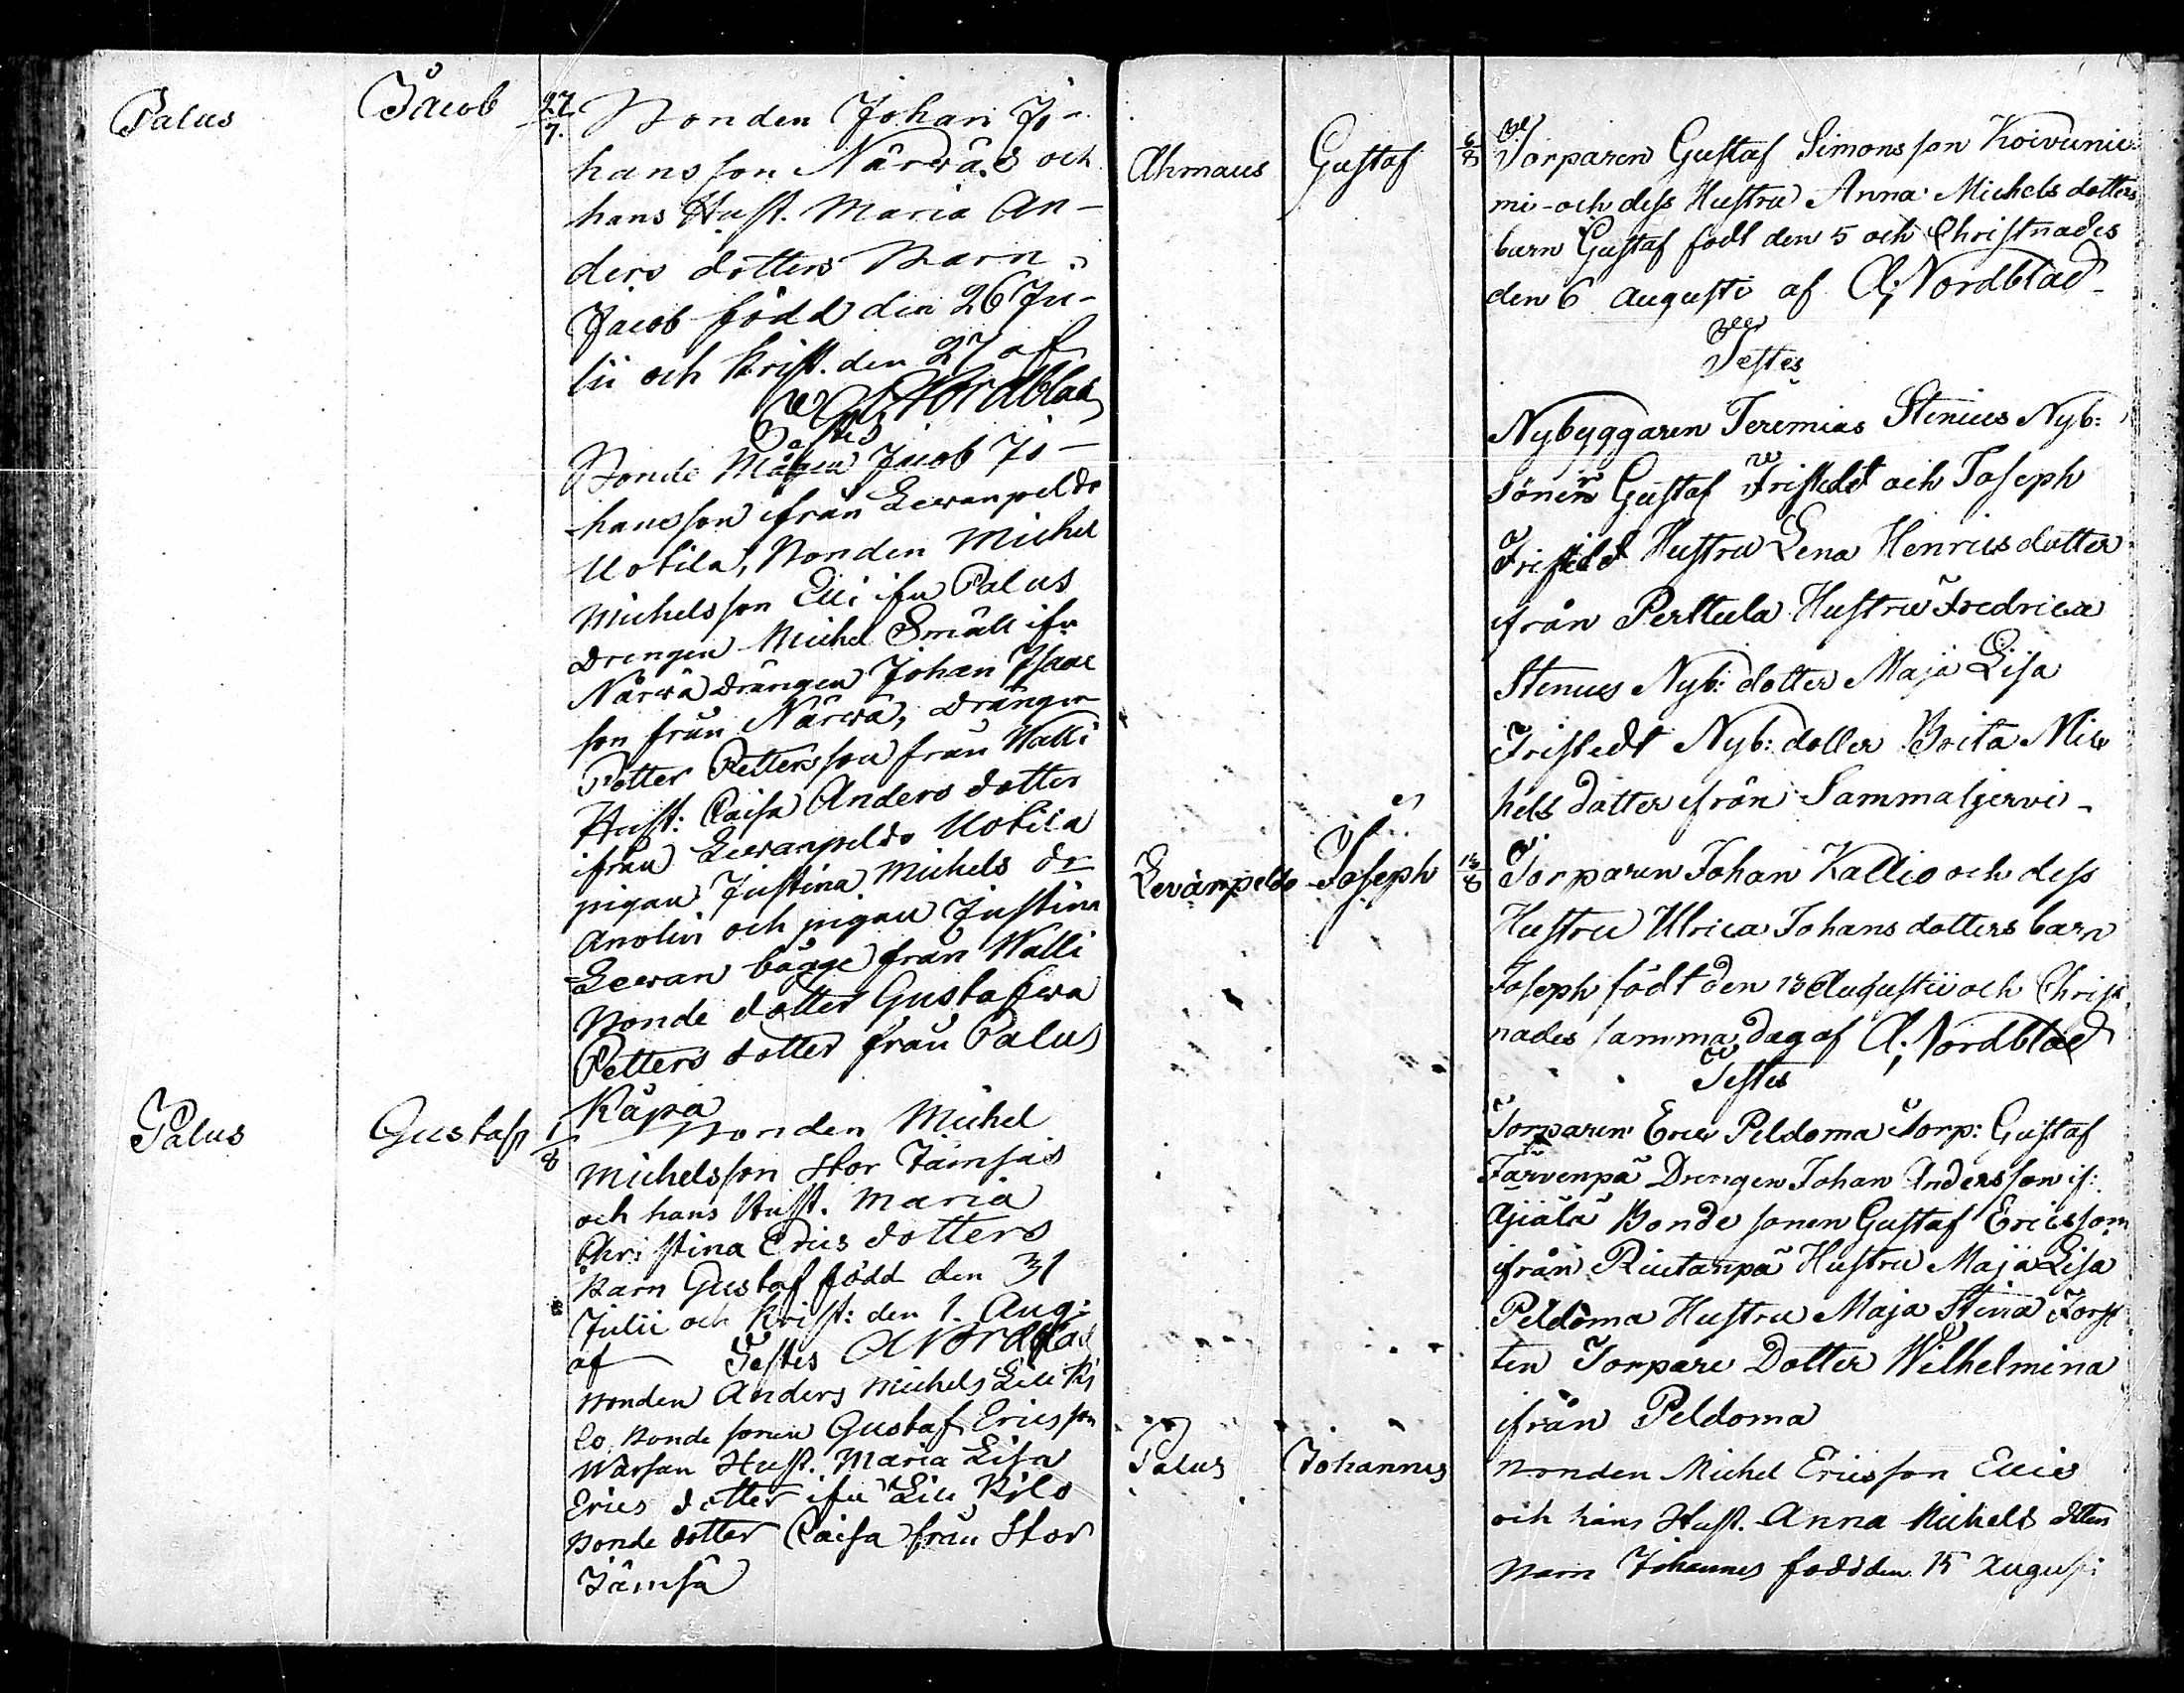 Palus
Jacob
27/7.
Bonden Johan Jo-
hansson Närwä.s och
hans Hust. Maria An-
ders dotters Barn
Jacob född den 26 Ju-
lii och krist. den 27 af
A Nordblad
Testes
Bonde Mågen Jacob Jo-
hansson ifrån Lewanpeldo
Uotila, Bonden Michel
Michelsson Elli ifrn Palus
Drengen Michel Småll ifn
Närwä Drängen Johan Isaac
son från Närwä, Drängen
Petter Pettersson från Walli
Hust: Caisa Anders dotter
ifrån Lewanpeldo Uotila
pigan Justina Michels dr
Anolin och pigan Justina
Lewan bägge från Walli
Bonde dotter Gustafwa
Petters dotter från Palus
Käpä
Palus
Gustaf
1/8
Bonden Michel
Michelsson Stor Jämsäs
och hans Hust. Maria
Christina Erics dotters
Barn Gustaf född den 31
Julii och krist: den 1. Aug:
af Testes A Nordblad
Bonden Anders Michels Lill Ki
lo, Bonde sonen Gustaf Ericsson
Warsan Hust. Maria Lisa
Erics dotter ifrn Lill Kilo
Bonde dotter Caisa från Stor
Jämsä
Ahmaus
Gustaf
6/8
Torparen Gustaf Simonsson Koivunie-
mi-och dess Hustru Anna Michelsdotters
barn Gustaf födt den 5 och Christnades
den 6 Augusti af A; Nordblad
Testes
Nybyggaren Jeremias Stenius Nyb:
sönen Gustaf Fristedt och Joseph
Fristedt Hustru Lena Henricsdotter
ifrån Perttula Hustru Fredrica
Stenius Nyb: dotter Maja Lisa
Fristedt Nyb: dotter Brita Mic
hels dotter ifrån Sammaljervi-
Levänpeldo
Joseph
13/8
Torparen Johan Kallio och dess
Hustru Ulrica Johans dotters barn
Joseph födt den 13 Augustii och Christ
nades samma dag af A; Nordblad
Testes
Torparen Eric Peldoma Torp: Gustaf
Järvenpä Drengen Johan Andersson if:
Ajiälä Bonde sonen Gustaf Ericsson
ifrån Riutanpä Hustru Maja Lisa
Peldoma Hustru Maja Stina Forst
ten Torpare Dotter Wilhelmina
ifrån Peldoma
Palus
Johannes
Bonden Michel Ericsson Ellis
och hans Hust. Anna Michels dtters
Barn Johannes född den 15 Augusti